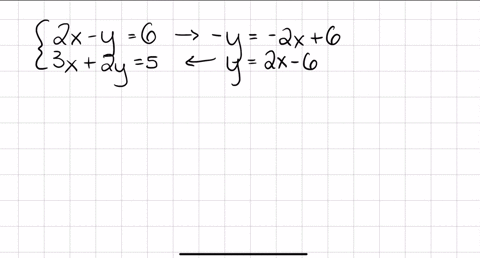 {2x-y=6 → -y=-2x+6
3x+2y=5 ← y=2x-6